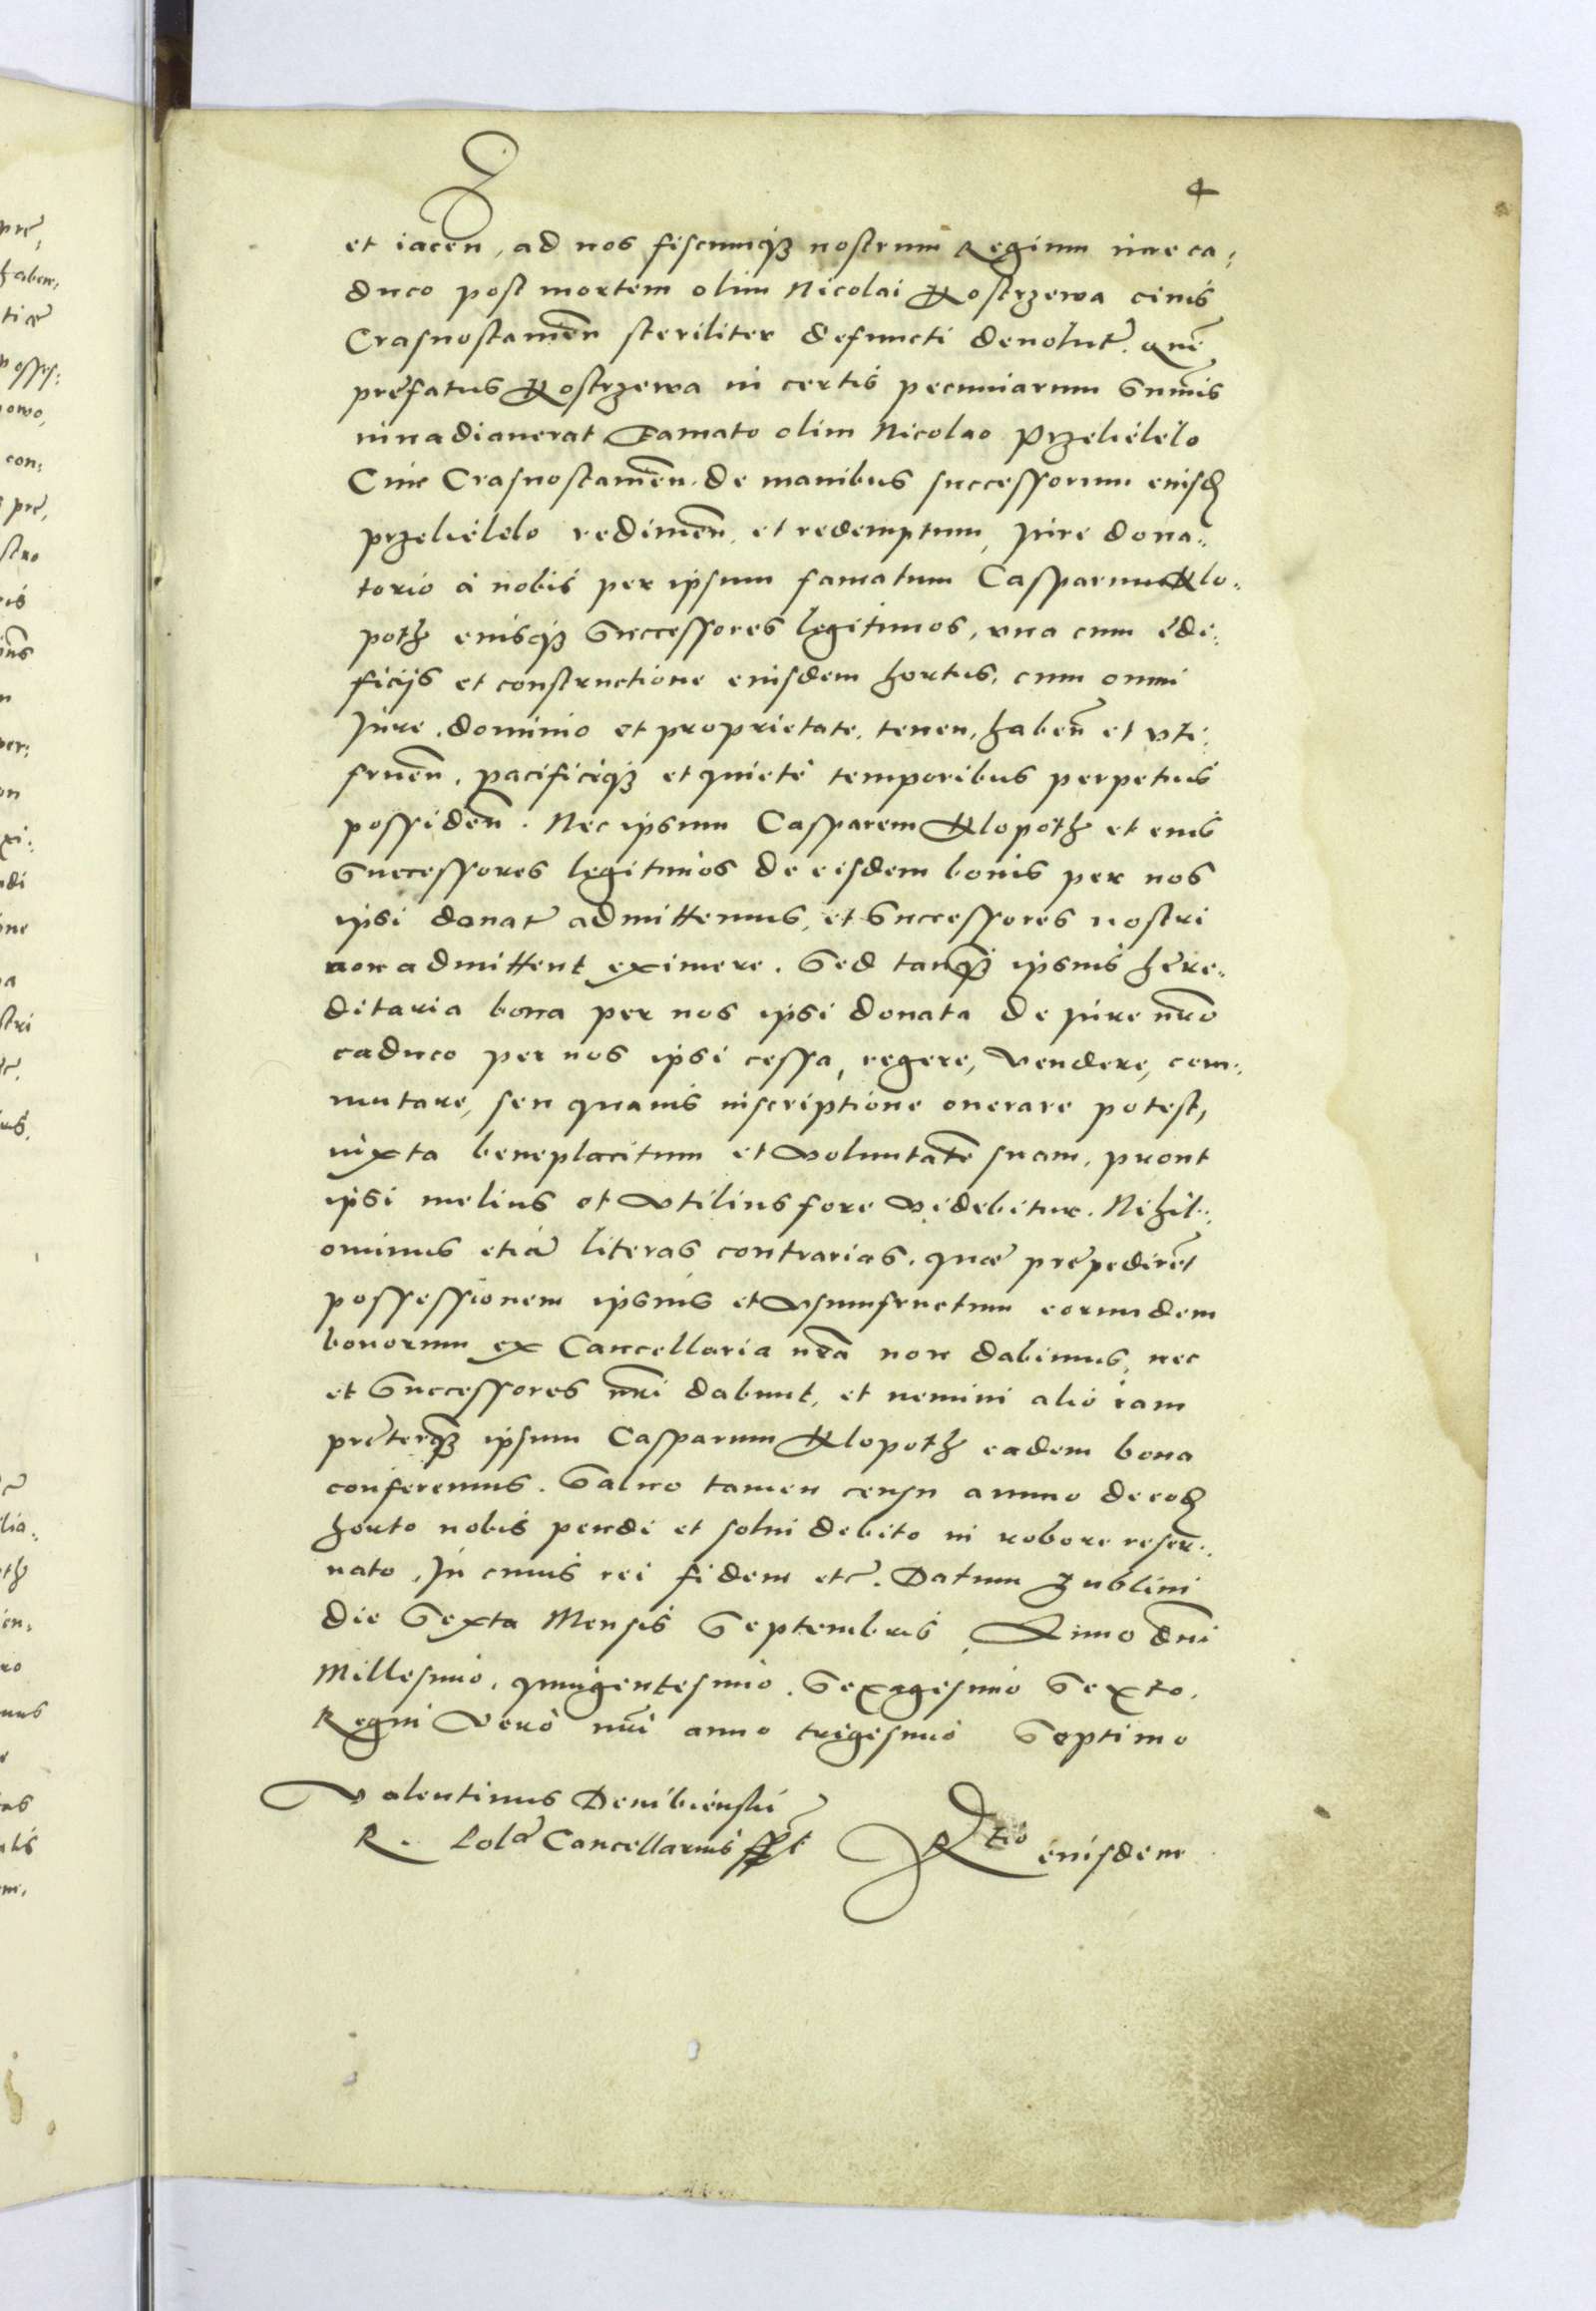 4
et iacen, ad nos fiscumq̃ nostrum Regium iure ca:
duco post mortem olim Nicolai Kostrzewa ciuis
Crasnostamẽn steriliter defuncti deuolut̃. quẽ
prefatus Kostrzewa in certis pecuniarum sum̃is
inuadiauerat Famato olim Nicolao Przeliélélo
Ciui Crasnostamẽn. de manibus successorum eiusd̃
przeliélelo redimẽn. et redemptum, Jure dona:
torio à nobis per ipsum famatum Casparum Klo:
poth eiusq̃ successores legitimos, vna cum edi:
ficijs et constructione eiusdem hortus. cum omni
Jure. dominio et proprietate. tenen. habeñ et vti:
fruẽn. pacificeq̃ et quietè temporibus perpetuis
possideñ. Nec ipsum Casparem Klopoth et eius
successores legitimos de eisdem bonis per nos
ipsi donat̃ admittemus, et successores nostri
non admittent eximere. Sed tanq̃ ipsius here:
ditaria bona per nos ipsi donata de Jure nr̃o
caduco per nos ipsi cessa, regere, vendere, com:
mutare, seu quauis inscriptione onerare potest,
iuxta beneplacitum et voluntatẽ suam. prout
ipsi melius et vtilius fore videbitur. Nihil:
ominus etiã literas contrarias. quæ prepedirẽt
possessionem ipsius et vsumfructum eorumdem
bonorum ex Cancellaria nr̃a non dabimus, nec
et successores nr̃i dabunt, et nemini alio iam
preterq̃ ipsum Casparum Klopoth eadem bona
conferemus. Saluo tamen censu annuo de eod̃
horto nobis pendi et solui debito in robore reser:
uato. In cuius rei fidem etc̃. Datum Lublini
die Sexta Mensis Septembris, Anno dñi
Millesimo. quingentesimo. Sexagesimo Sexto.
Regni verò nr̃i anno trigesimo Septimo
Valentinus Dembienski
R. Polõ Cancellarius sspt
Rtio eiusdem